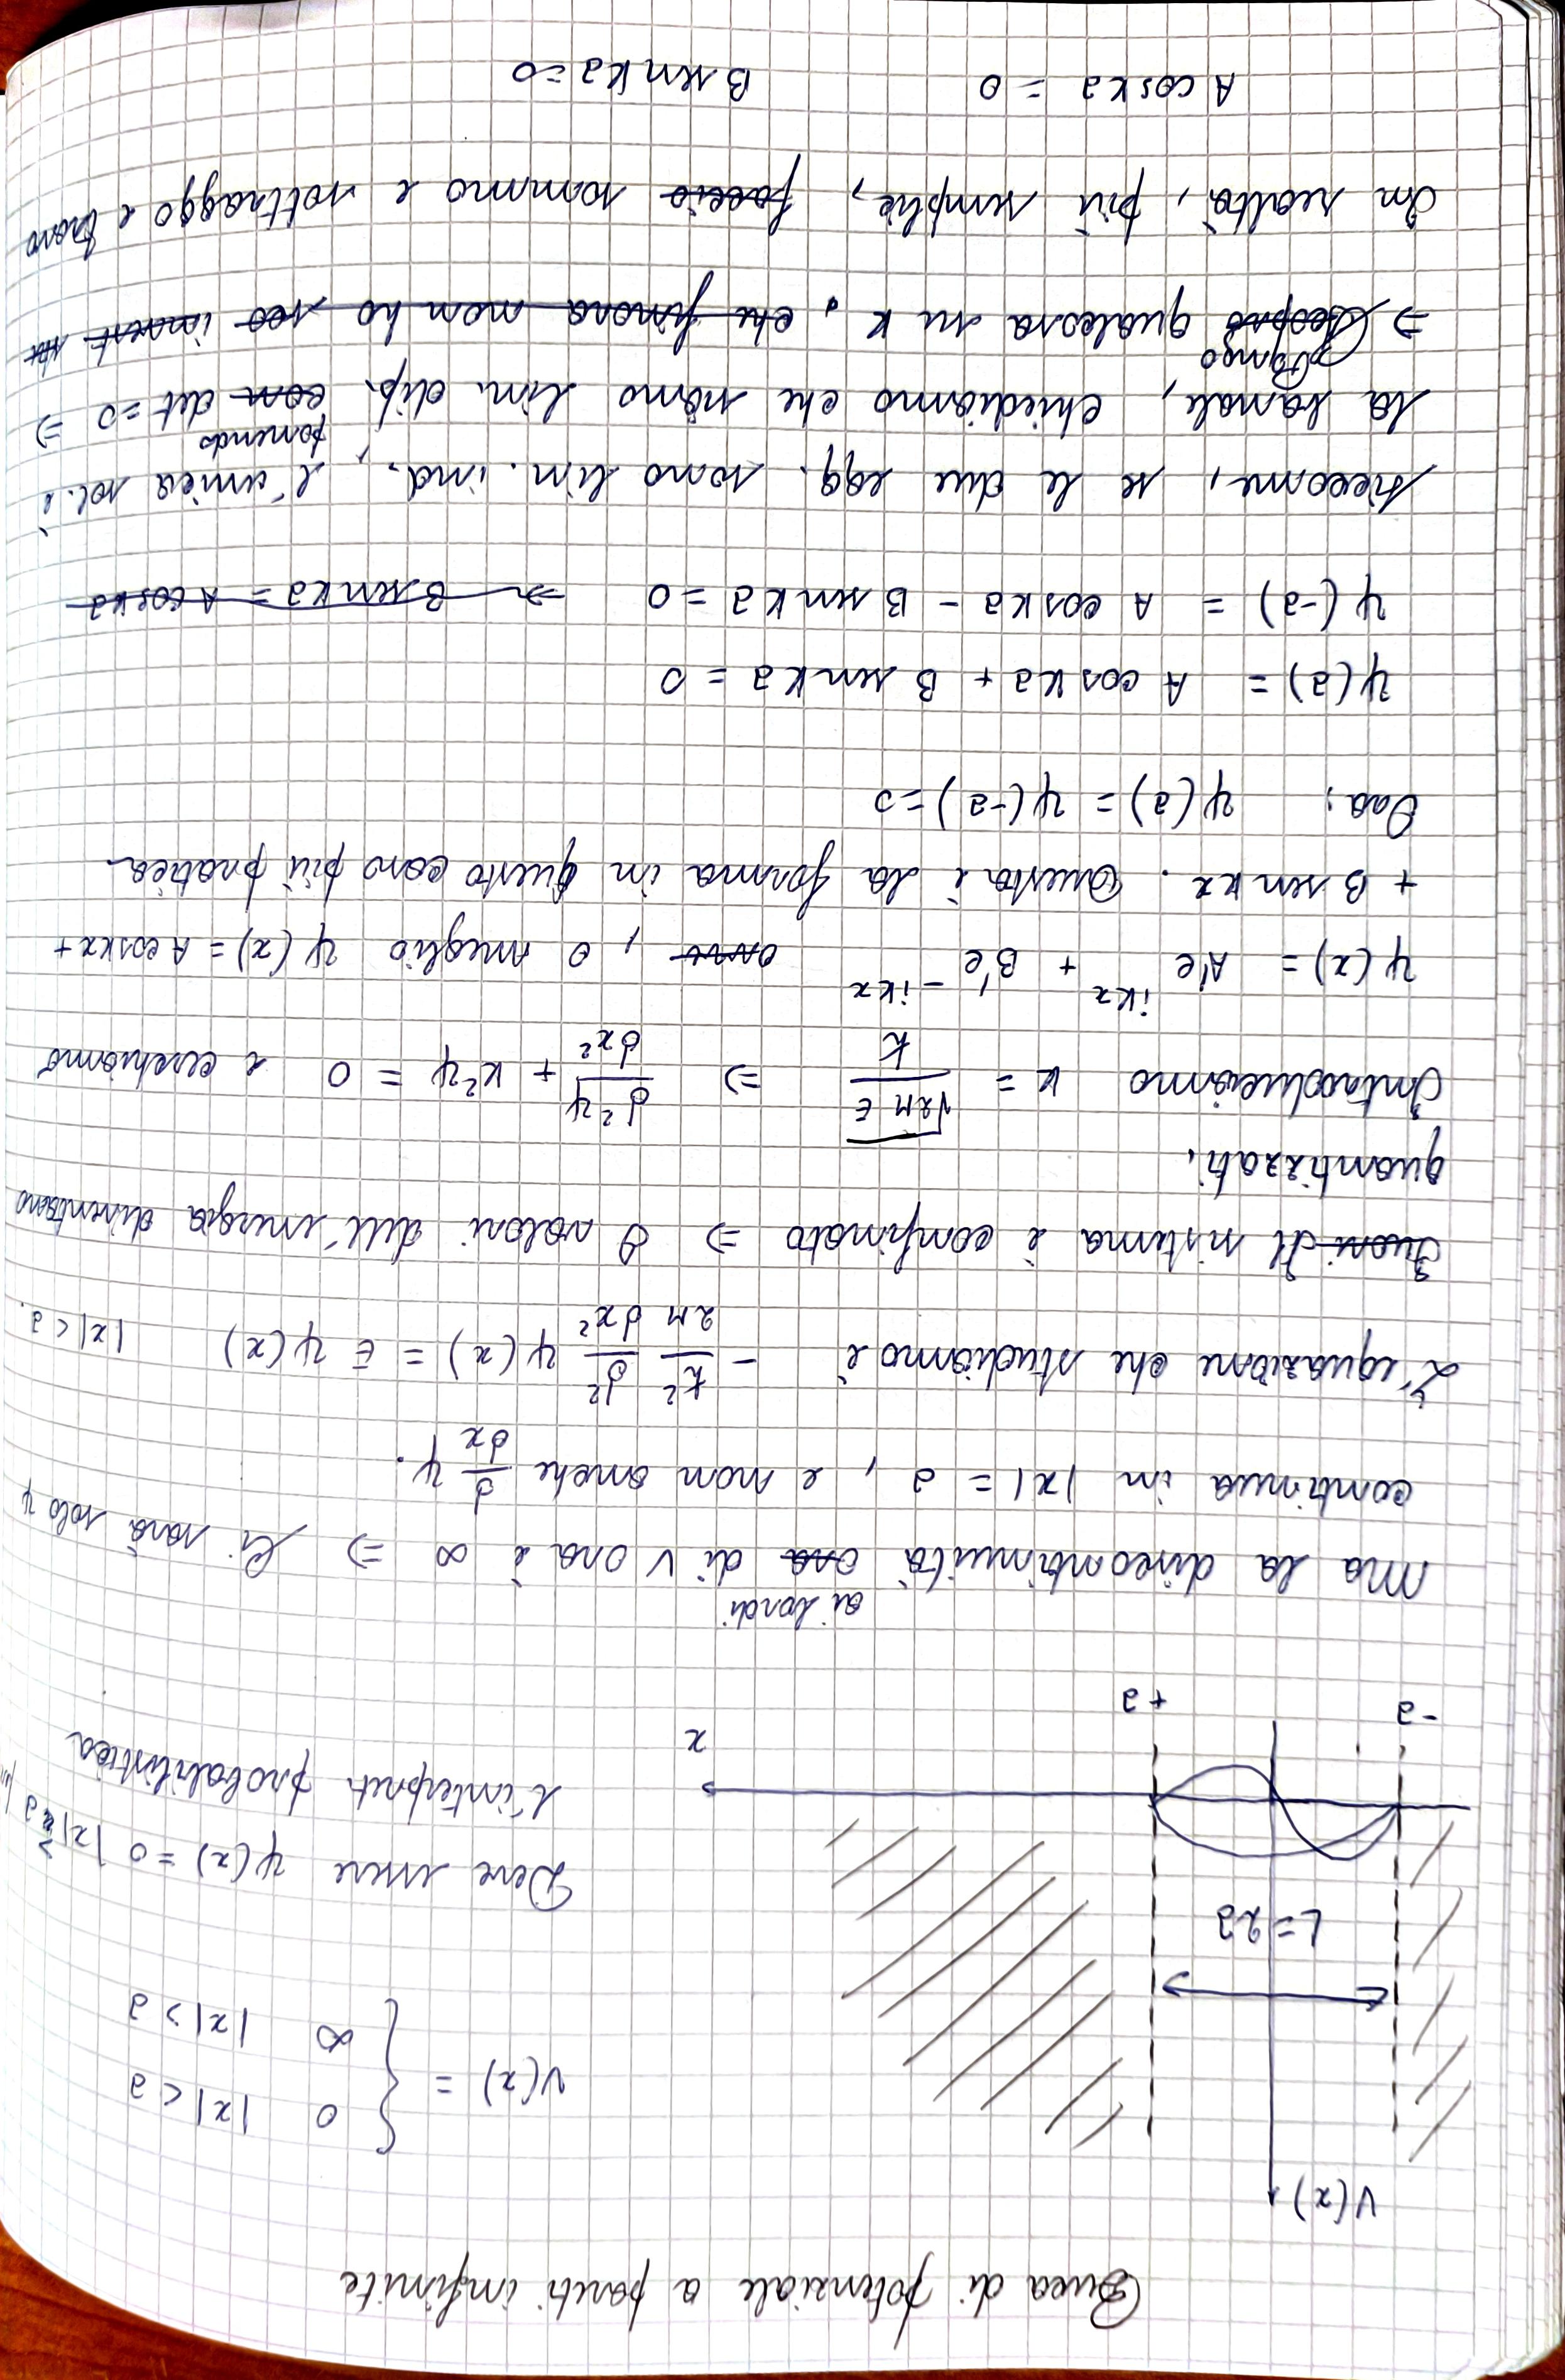 Buca di potenziale a pareti infinite
V(x)
V(x) = { 0 |x| < a
∞ |x| > a
L = 2a
Deve essere ψ(x) = 0 |x| ≥ a
l'interpret. probabilistica
-a +a x
ai bordi
Ma la discontinuità ora di V ora è ∞ ⇒ Ci sarà solo ψ
continua in |x| = a, e non anche d/dx ψ.
L'equazione che studiamo è - ħ²/2M d²/dx² ψ(x) = E ψ(x) |x| < a.
Fuori Il sistema è confinato ⇒ I valori dell'energia diventano
quantizzati.
Introduciamo k = √2ME/ħ ⇒ d²ψ/dx² + k²ψ = 0 e cerchiamo
ψ(x) = A'e^ikx + B'e^-ikx, o meglio ψ(x) = A cos kx +
+ B sen kx. Questa è la forma in questo caso più pratica.
Ora: ψ(a) = ψ(-a) = 0
ψ(a) = A cos ka + B sen ka = 0
ψ(-a) = A cos ka - B sen ka = 0 → B sen ka = A cos ka
siccome, se le due eqq. sono lin. ind., l'unica sol. è
ponendo
la banale, chiediamo che siano lin. dip. con det = 0 ⇒
Pongo
⇒ Scopro qualcosa su k, che finora non ho
In realtà, più semplice, faccio sommo e sottraggo e trovo
A cos ka = 0 B sen ka = 0